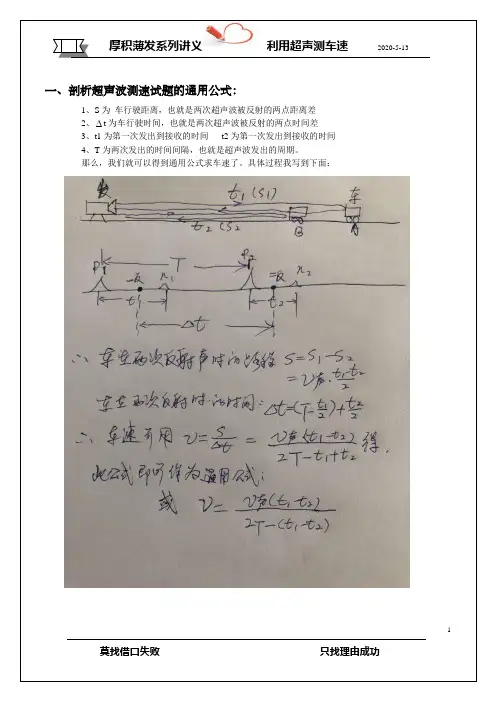 厚积薄发系列讲义 利用超声测车速 2020-5-13
一、剖析超声波测速试题的通用公式:
1、S为 车行驶距离,也就是两次超声波被反射的两点距离差
2、Δt为车行驶时间,也就是两次超声波被反射的两点时间差
3、t1为第一次发出到接收的时间 t2为第一次发出到接收的时间
4、T为两次发出的时间间隔,也就是超声波发出的周期。
那么,我们就可以得到通用公式求车速了。具体过程我写到下面:
t₁(S₁) 车
t₂(S₂ B A
P₁ T P₂
一反 n₁ 二反 n₂
t₁ t₂
Δt
∴ 车在两次反射声时的路程 S=S₁-S₂
=V声·(t₁-t₂)/2
车在两次反射时的时间:Δt=(T-t₁/2)+t₂/2
∴ 车速可用 V=S/Δt = V声(t₁-t₂)/(2T-t₁+t₂) 得.
此公式即可作为通用公式:
或 V= V声(t₁-t₂)/(2T-(t₁-t₂))
1
莫找借口失败 只找理由成功